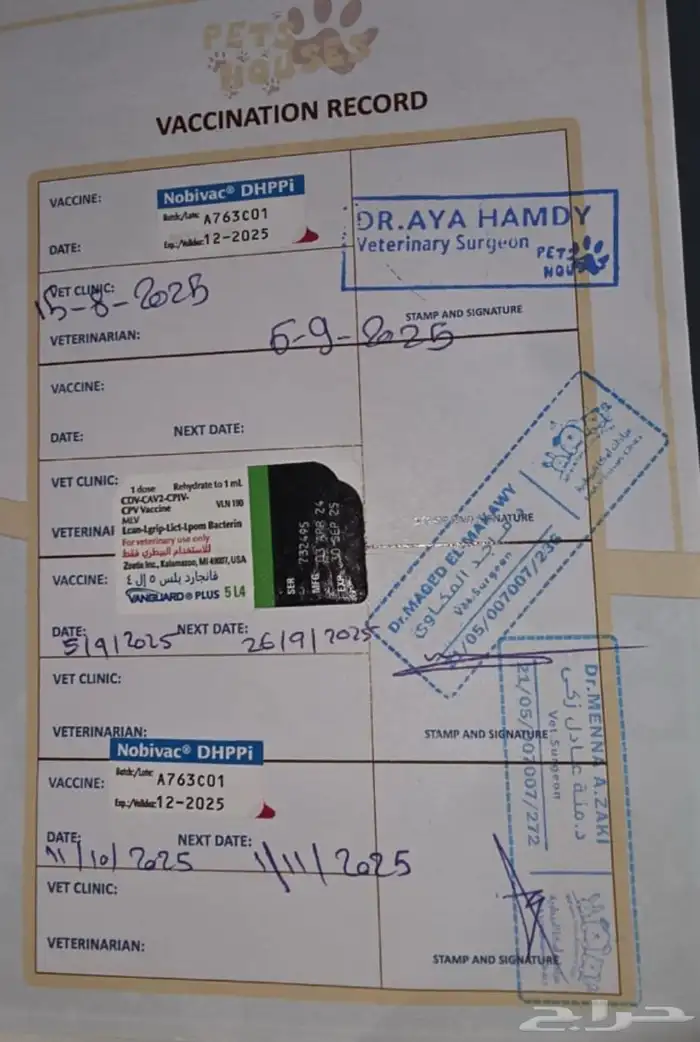 PETS
HOUSES
VACCINATION RECORD
VACCINE:
Nobivac® DHPPi
Batch/Lote: A763C01
Exp./Validez: 12-2025
DATE:
DR.AYA HAMDY
Veterinary Surgeon
PETS
HOUSES
VET CLINIC:
15-8-2025
STAMP AND SIGNATURE
VETERINARIAN:
6-9-2025
VACCINE:
DATE:
NEXT DATE:
VET CLINIC:
1 dose Rehydrate to 1 mL
CDV-CAV2-CPIV-
CPV Vaccine VLN 190
MLV
Lcan-Lgrip-Lict-Lpom Bacterin
For veterinary use only
للاستخدام البيطري فقط
Zoetis Inc., Kalamazoo, MI 49007, USA
فانجارد بلس ٥ إل ٤
VANGUARD® PLUS 5 L4
SER 732495
MFG 03 APR 24
EXP 30 SEP 25
VETERINAI
STAMP AND SIGNATURE
Dr.MAGED EL MAKAWY
Vet.Surgeon
/05/007007/236
VACCINE:
DATE:
5/9/2025
NEXT DATE:
26/9/2025
VET CLINIC:
VETERINARIAN:
STAMP AND SIGNATURE
Dr.MENNA A.ZAKI
د.منة عادل زكى
Vet.Surgeon
21/05/007007/272
VACCINE:
Nobivac® DHPPi
Batch/Lote: A763C01
Exp./Validez: 12-2025
DATE:
11/10/2025
NEXT DATE:
1/11/2025
VET CLINIC:
VETERINARIAN:
STAMP AND SIGNATURE
حراج